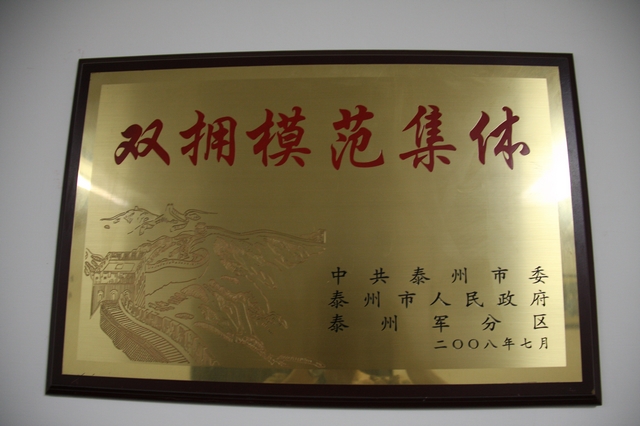 双拥模范集体
中共泰州市委
泰州市人民政府
泰州军分区
二〇〇八年七月